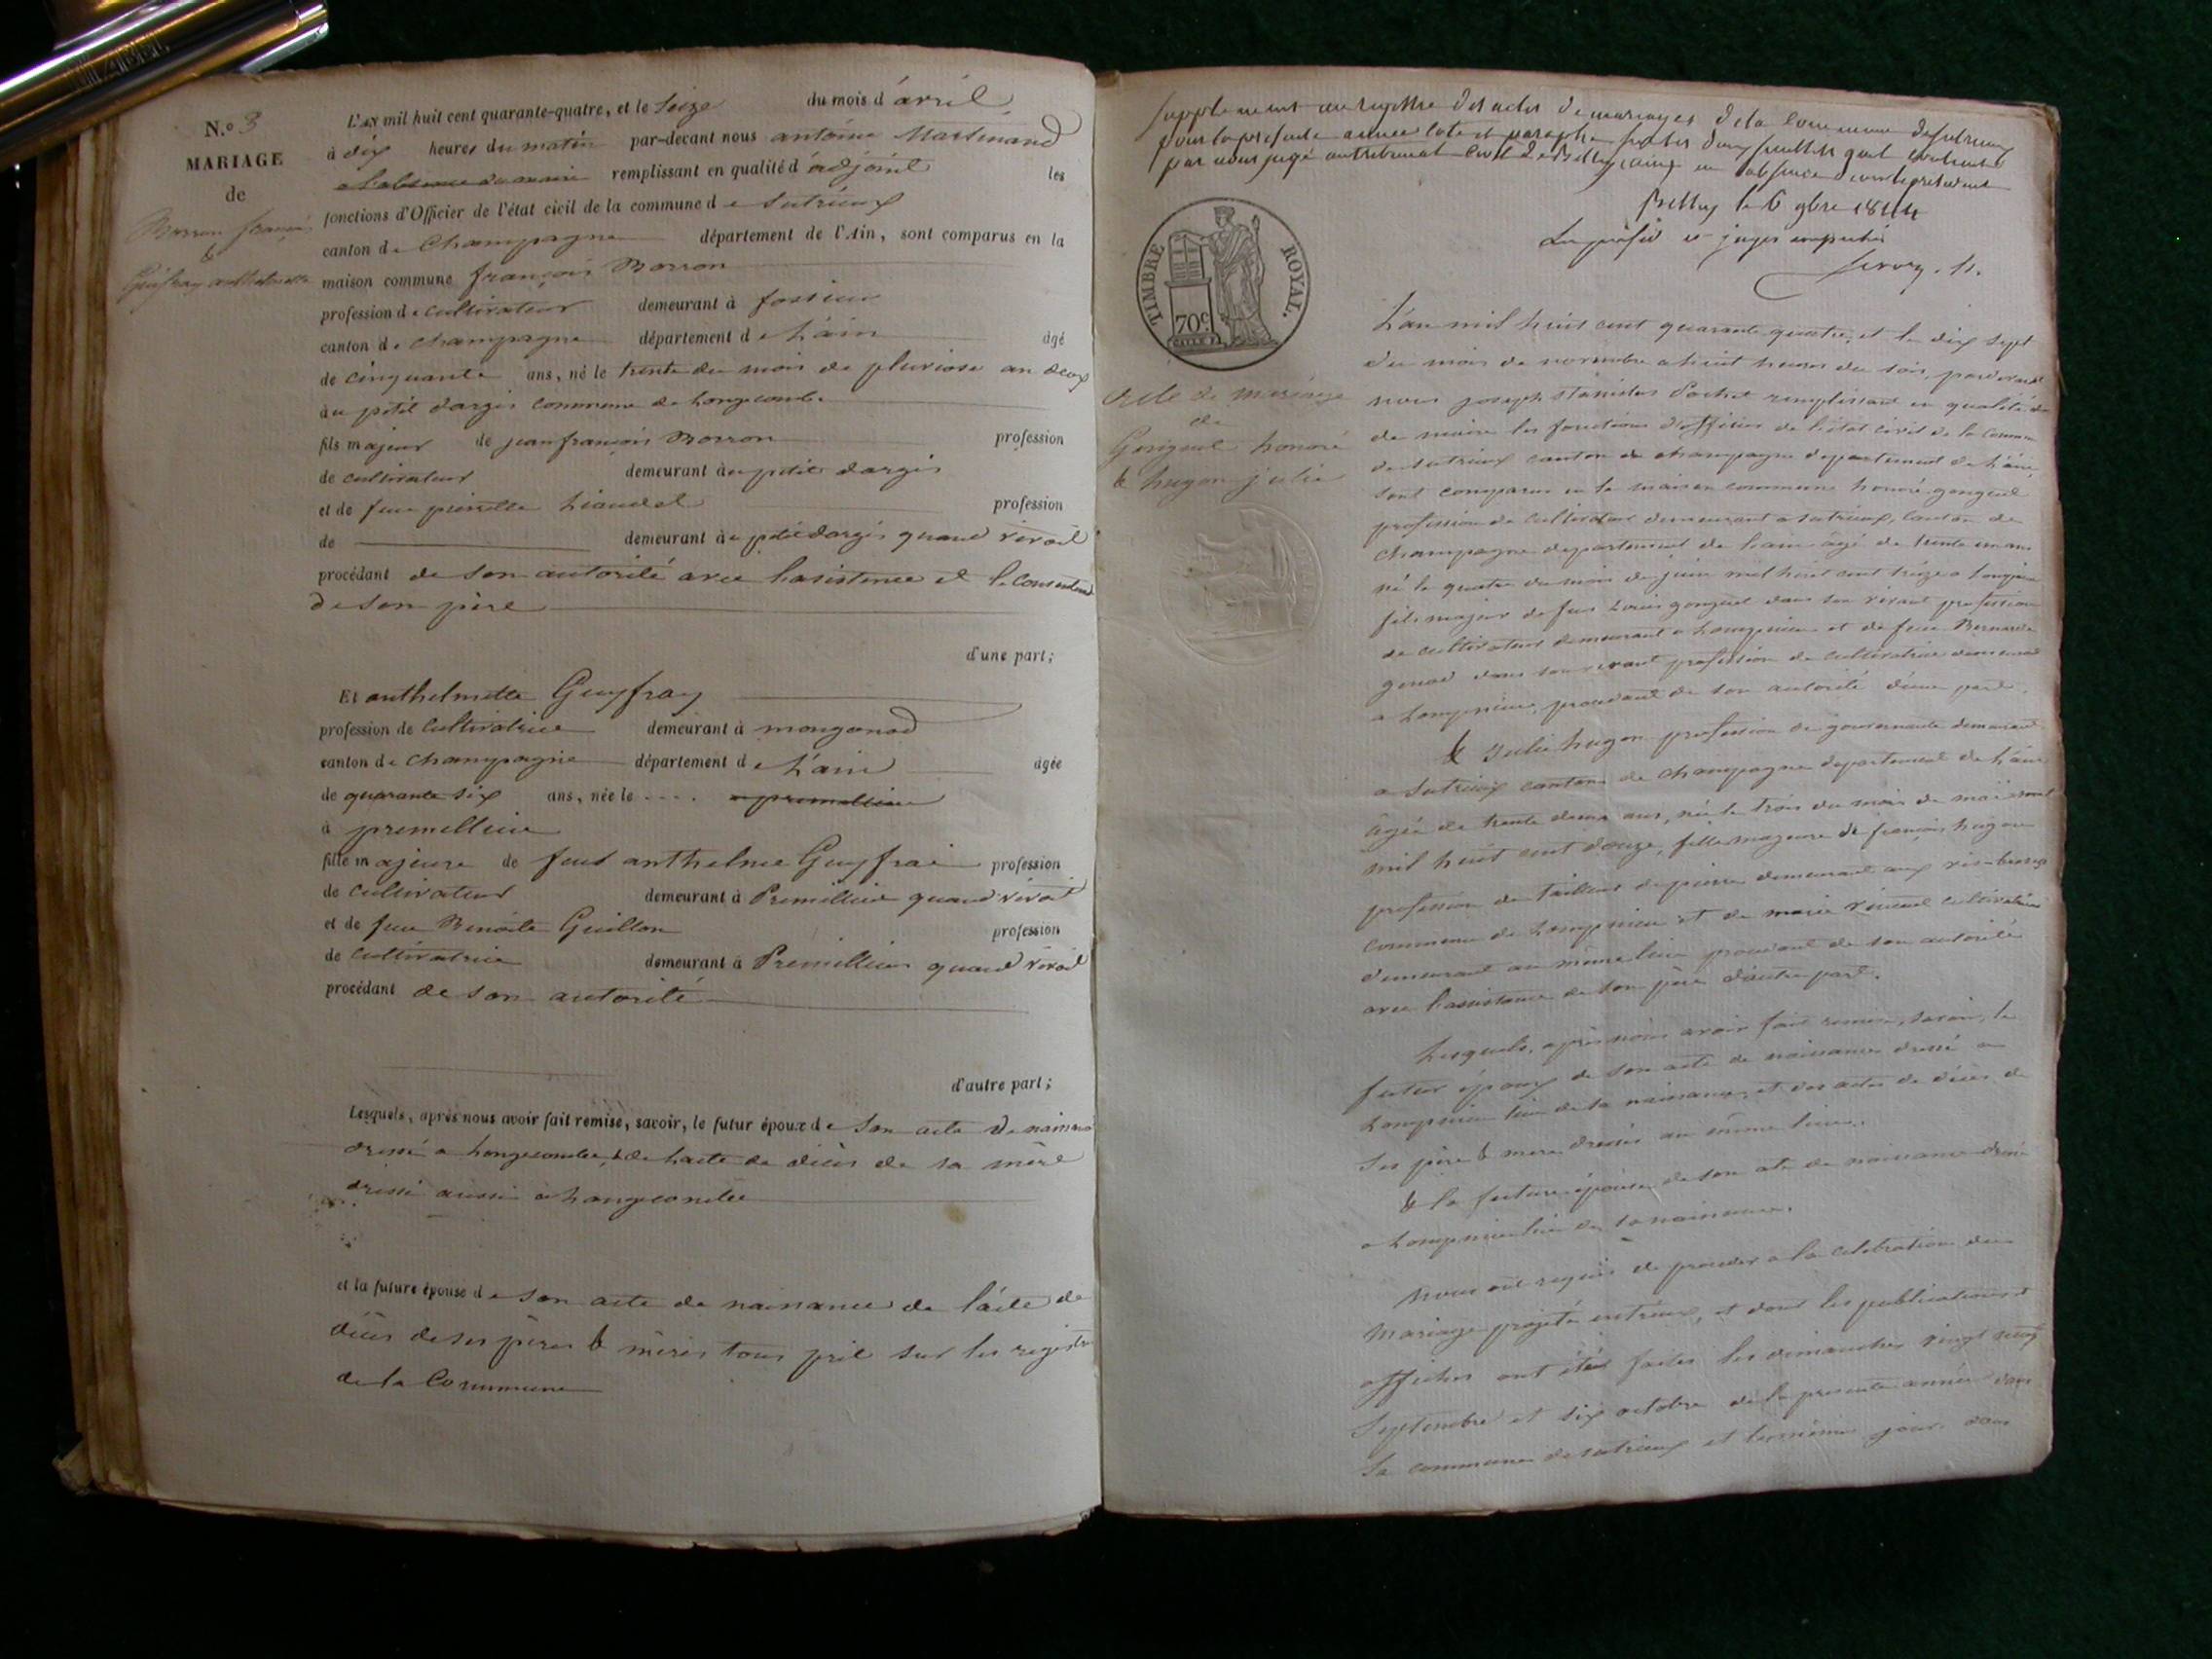 N.o 3
MARIAGE
de
Borron françois
&
Guyfray anthelmette
L'AN mil huit cent quarante-quatre, et le seize du mois d'avril
à dix heures du matin par-devant nous antoine Martinand
remplissant en qualité d'adjoint les
fonctions d'Officier de l'état civil de la commune de Sutrieux
canton de Champagne département de l'Ain, sont comparus en la
maison commune françois Borron
profession de cultivateur demeurant à fossieu
canton de champagne département de L'ain âgé
de cinquante ans, né le trente du mois de pluviose an deux
au petit dargis commune de Longecombe
fils majeur de jean françois Borron profession
de cultivateur demeurant au petit dargis
et de feue pierrette Liaudet profession
de demeurant au petit dargis quand vivait
procédant de son autorité avec lasistence et le consentem
de son père
d'une part;
Et anthelmette Guyfray
profession de Cultivatrice demeurant à mongonod
canton de champagne département de L'ain âgée
de quarante six ans, née le ....
à premillieu
fille majeure de feut anthelme Guyfrai profession
de cultivateur demeurant à Premillieu quand vivait
et de feue Benoite Guillon profession
de cultivatrice demeurant à Premillieu quand vivait
procédant de son autorité
d'autre part;
Lesquels, après nous avoir fait remise, savoir, le futur époux de son acte de naissance
dressé a Longecombe, & de lacte de décès de sa mère
dressé aussi à Longecombe
et la future épouse de son acte de naissance de l'acte de
décès de ses pères & mères tous pril sur les registre
de la Commune
Supplement au registre des actes de mariages de la Commune de Sutrieux
pour la presente année coté et paraphé
par nous juge au tribunal Civil de Belley en absence
Belley le 6 9bre 1844
TIMBRE ROYAL.
70c
acte de mariage
de
Gonguet honoré
& hugon julie
L'an mil huit cent quarante quatre, et le dix sept
du mois de novembre a huit heures du soir, pardevant
nous joseph stanislas Pochet remplissant en qualité de
de maire les fonctions d'officier de l'état civil de la Commune
de Sutrieux canton de champagne departement de L'ain,
sont comparus en la maison commune honoré gonguet
profession de cultivateur demeurant a sutrieux, canton de
champagne departement de lain âgé de trente un ans
né le quatre du mois de juin mil huit cent treize a Lompnieu
fils majeur de feu Louis gonguet dans son vivant profession
de cultivateur demeurant a Lompnieu et de feue Bernarde
dans son vivant profession de cultivatrice demeurant
a Lompnieu, procédant de son autorité d'une part.
& Julie hugon profession de gouvernante demeurant
a Sutrieux canton de champagne departement de L'ain
âgée de trente deux ans, née le trois du mois de mai
mil huit cent douze, fille majeure de françois hugon
profession de tailleur de pierre demeurant aux
commune de Lompnieu et de marie cultivatrice
demeurant au même lieu procédant de son autorité
avec l'assistance de son père d'autre part.
Lesquels, après nous avoir fait remise, savoir, le
futur époux de son acte de naissance dressé a
Lompnieu lieu de sa naissance, et des actes de décès de
ses père & mère dressés au même lieu.
& la future épouse de son acte de naissance dressé
a Lompnieu lieu de sa naissance.
Nous ont requis de procéder a la celebration du
mariage projeté entr'eux, et dont les publications et
affiches ont été faites les dimanches vingt neuf
septembre et six octobre de la presente année dans
la commune de sutrieux et les même jour dans